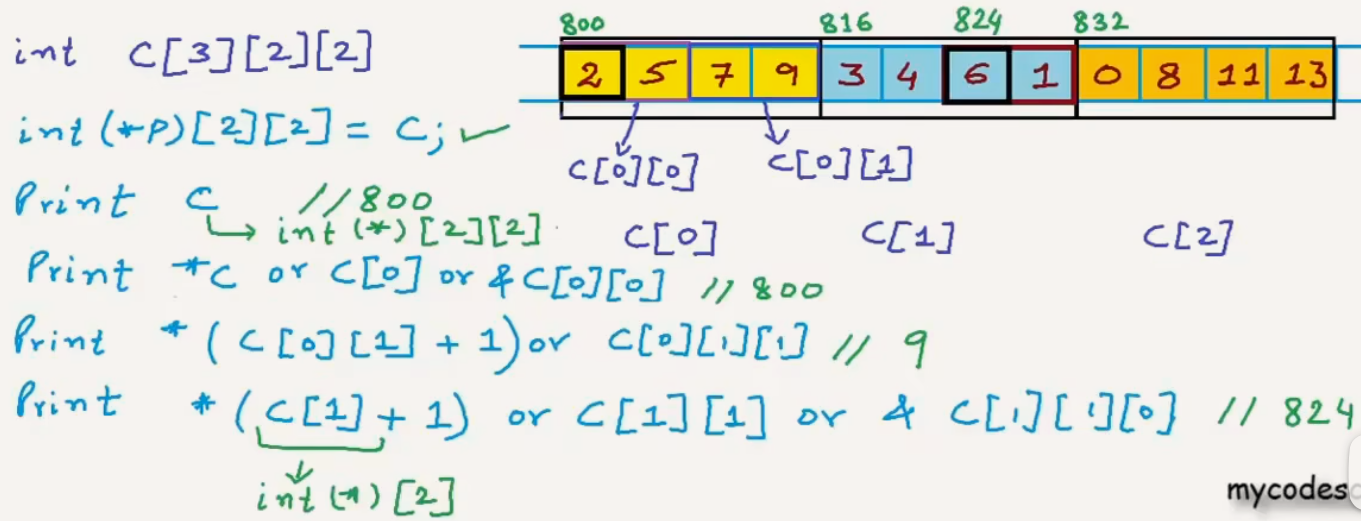 int C[3][2][2]
800 816 824 832
2 5 7 9 3 4 6 1 0 8 11 13
int (*P)[2][2] = C; ✓
C[0][0] C[0][1]
Print C //800
↳ int (*) [2][2]
C[0] C[1] C[2]
Print *C or C[0] or &C[0][0] // 800
Print *(C[0][1] + 1) or C[0][1][1] // 9
Print *(C[1] + 1) or C[1][1] or & C[1][1][0] // 824
int (*) [2]
mycodes